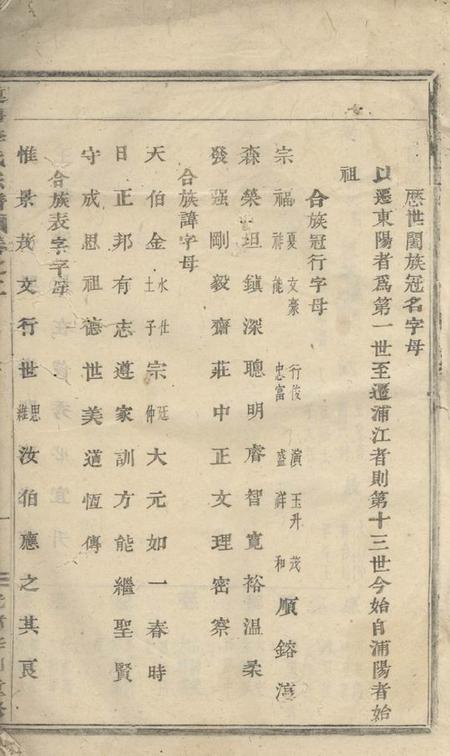 歷世闔族冠名字母
以遷東陽者爲第一世至遷浦江者則第十三世今始自浦陽者始
祖
合族冠行字母
宗福夏祥能文豪行俊忠富演盛玉升祥茂和順鎔淳
森榮坦鎮深聰明睿智寬裕温柔
發强剛毅齋莊中正文理密察
合族諱字母
天伯金水土仕子宗廷仲大元如一春時
日正邦有志遵家訓方能繼聖賢
守成思祖德世美道恆傳
合族表字字母
惟景茂文行世思維汝伯應之其良